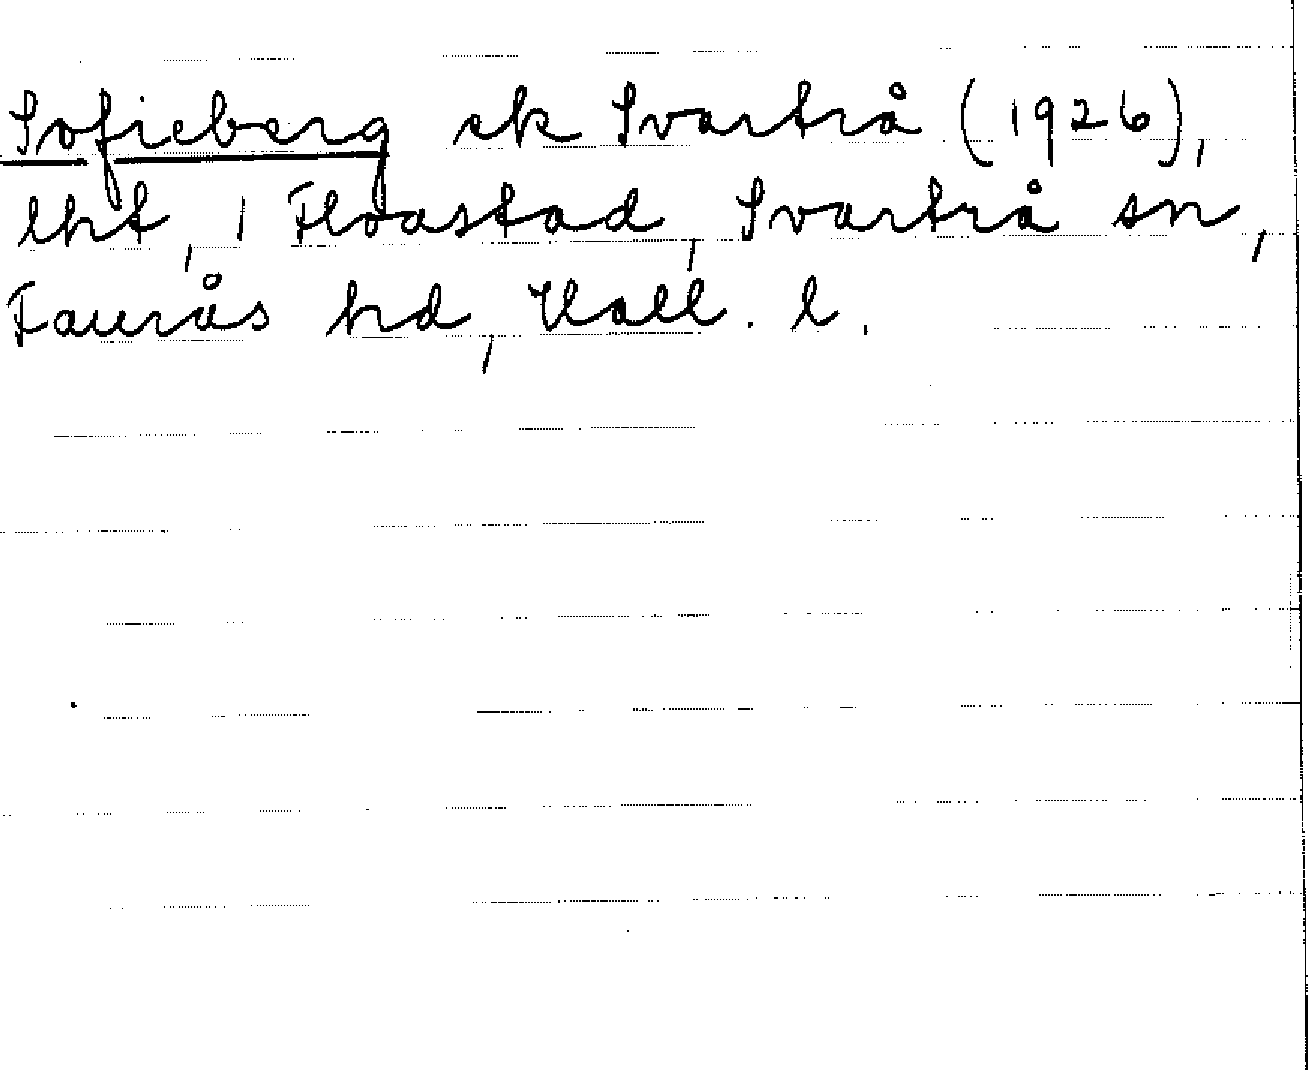 Sofieberg ek Svartrå (1926),
lht, i Floastad, Svartrå sn,
Faurås hd, Hall. l.